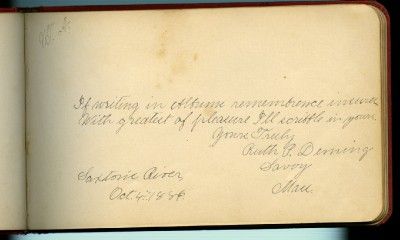 If writing in Albums remembrence insures
With greatest of pleasure I'll scribble in yours
Yours Truly
Ruth P. Deming
Savoy
Mass.
Saxtons River
Oct. 4. 1886